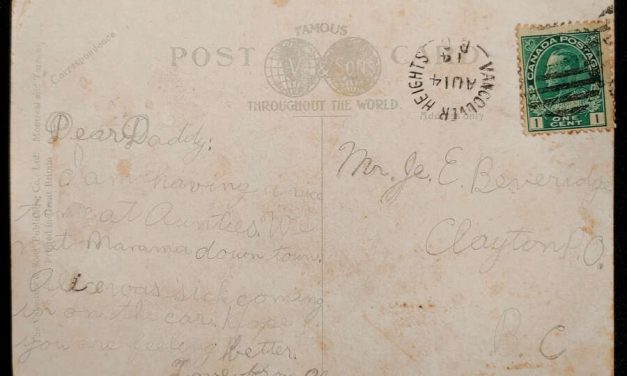 FAMOUS
POST CARD
V & SONS
THROUGHOUT THE WORLD
Correspondence
only
Montreal and Toronto
Printed in Great Britain
VANCOUVER HEIGHTS
AU 14
CANADA POSTAGE
1 ONE CENT 1
Dear Daddy:
I am having a nice
time at Aunties. We
met Mamma down town.
Alice was sick coming
in on the car. hope
you are feeling better.
Love from
Mr. Jc. E. Beveridge
Clayton P.O.
B.C